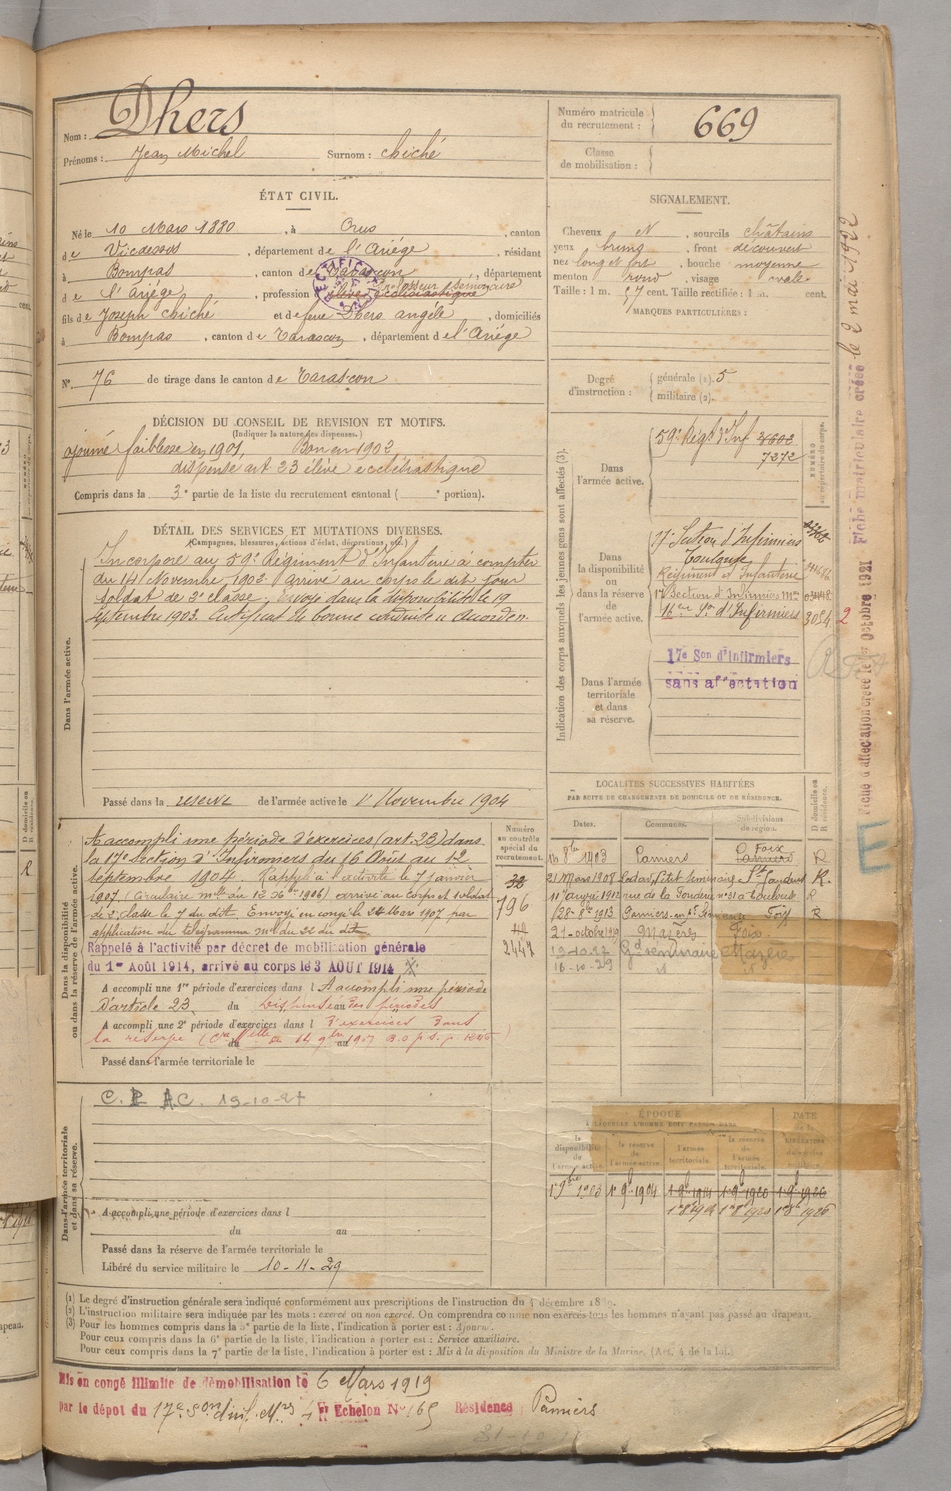 Nom : Dhers
Prénoms : Jean Michel Surnom : chiché
Numéro matricule du recrutement : 669
Classe de mobilisation :
ÉTAT CIVIL.
Né le 10 Mars 1880, à Orus, canton
de Vicdessos, département de l'Ariége, résidant
à Bompas, canton de Tarascon, département
de l'Ariége, profession élève ecclésiastique professeur séminaire
RECTIFICATIF
fils de Joseph chiché et de feue Dhers angéle, domiciliés
à Bompas, canton de Tarascon, département de l'Ariége
N° 76 de tirage dans le canton de Tarascon
SIGNALEMENT.
Cheveux N, sourcils châtains
yeux bruns, front découvert
nez long et fort, bouche moyenne
menton rond, visage ovale
Taille : 1 m. 57 cent. Taille rectifiée : 1 m. cent.
MARQUES PARTICULIÈRES :
Degré d'instruction : générale (1). 5
militaire (2).
DÉCISION DU CONSEIL DE REVISION ET MOTIFS.
(Indiquer la nature des dispenses.)
ajourné faiblesse en 1901, Bon en 1902
dispensé art 23 élève ecclésiastique
Compris dans la 3e partie de la liste du recrutement cantonal ( e portion).
DÉTAIL DES SERVICES ET MUTATIONS DIVERSES.
(Campagnes, blessures, actions d'éclat, décorations, etc.)
Dans l'armée active.
Incorporé au 59e Régiment d'Infanterie à compter
du 14 Novembre 1902. arrivé au corps le dit jour
soldat de 2e classe, Envoyé dans la disponibilité le 19
septembre 1903. Certificat de bonne conduite accordé
Passé dans la réserve de l'armée active le 1r Novembre 1904
Indication des corps auxquels les jeunes gens sont affectés (3).
NUMÉRO au répertoire du corps.
Dans l'armée active.
59e Régt d'Inf 7272
Dans la disponibilité ou dans la réserve de l'armée active.
17e Section d'Infirmiers
Toulouse
Régiment d'Infanterie
17e Section d'Infirmiers Mres
Son d'Infirmiers 3054 2
Dans l'armée territoriale et dans sa réserve.
17e Son d'Infirmiers
sans affectation
Fiche d'affectation créée le 1er Octobre 1921 Fiche matriculaire créée le 2 mai 1922
E
Dans la disponibilité ou dans la réserve de l'armée active.
A accompli une période d'exercices (art. 23) dans
la 17e Section d'Infirmiers du 16 Août au 12
Septembre 1904. Rappelé à l'activité le 7 janvier
1907 (Circulaire mlle du 1906) arrivé au corps et soldat
de 2e classe le 7 du dit. Envoyé en congé le Mars 1907 par
application du télégramme ml du 22 du dit
Rappelé à l'activité par décret de mobilisation générale
du 1er Août 1914, arrivé au corps le 3 AOUT 1914
A accompli une 1re période d'exercices dans l A accompli une période
D'article 23 du Dispensé au des périodes
A accompli une 2e période d'exercices dans l d'exercices dans
la réserve du au
Passé dans l'armée territoriale le
Numéro au contrôle spécial du recrutement.
32
796
2447
LOCALITÉS SUCCESSIVES HABITÉES
PAR SUITE DE CHANGEMENTS DE DOMICILE OU DE RÉSIDENCE.
Dates. Communes. Subdivisions de région. D domicile ou R résidence.
1903 Pamiers Foix R
21 Mars 1908 Petit Séminaire St Gaudens R.
1912 rue de la Fonderie n° 31 à Toulouse R
28 8bre 1913 Pamiers Gd Séminaire Foix R
21-octobre 1919 Mazères Foix
19-10-27 Gd séminaire Mazères
16-10-29
Dans l'armée territoriale et dans sa réserve.
C. R A.C. 19-10-27
A accompli une période d'exercices dans l
du au
Passé dans la réserve de l'armée territoriale le
Libéré du service militaire le 10-11-29
ÉPOQUE
À LAQUELLE L'HOMME DOIT PASSER DANS
la disponibilité de l'armée active. la réserve de l'armée active. l'armée territoriale. la réserve de l'armée territoriale. DATE de la LIBÉRATION du service militaire.
1r 9bre 1903 1r 9b 1904 1r 9b 1914 1r 9b 1920 1r 9b 1926
(1) Le degré d'instruction générale sera indiqué conformément aux prescriptions de l'instruction du 4 décembre
(2) L'instruction militaire sera indiquée par les mots : exercé ou non exercé. On comprendra comme non exercés tous les hommes n'ayant pas passé au drapeau.
(3) Pour les hommes compris dans la 5e partie de la liste, l'indication à porter est : Ajourné.
Pour ceux compris dans la 6e partie de la liste, l'indication à porter est : Service auxiliaire.
Pour ceux compris dans la 7e partie de la liste, l'indication à porter est : Mis à la disposition du Ministre de la Marine. (Art. 4 de la loi.)
Mis en congé illimité de démobilisation le 6 Mars 1919
par le dépôt du 17e Son d'inf. Mres Echelon N° 165 Résidence Pamiers